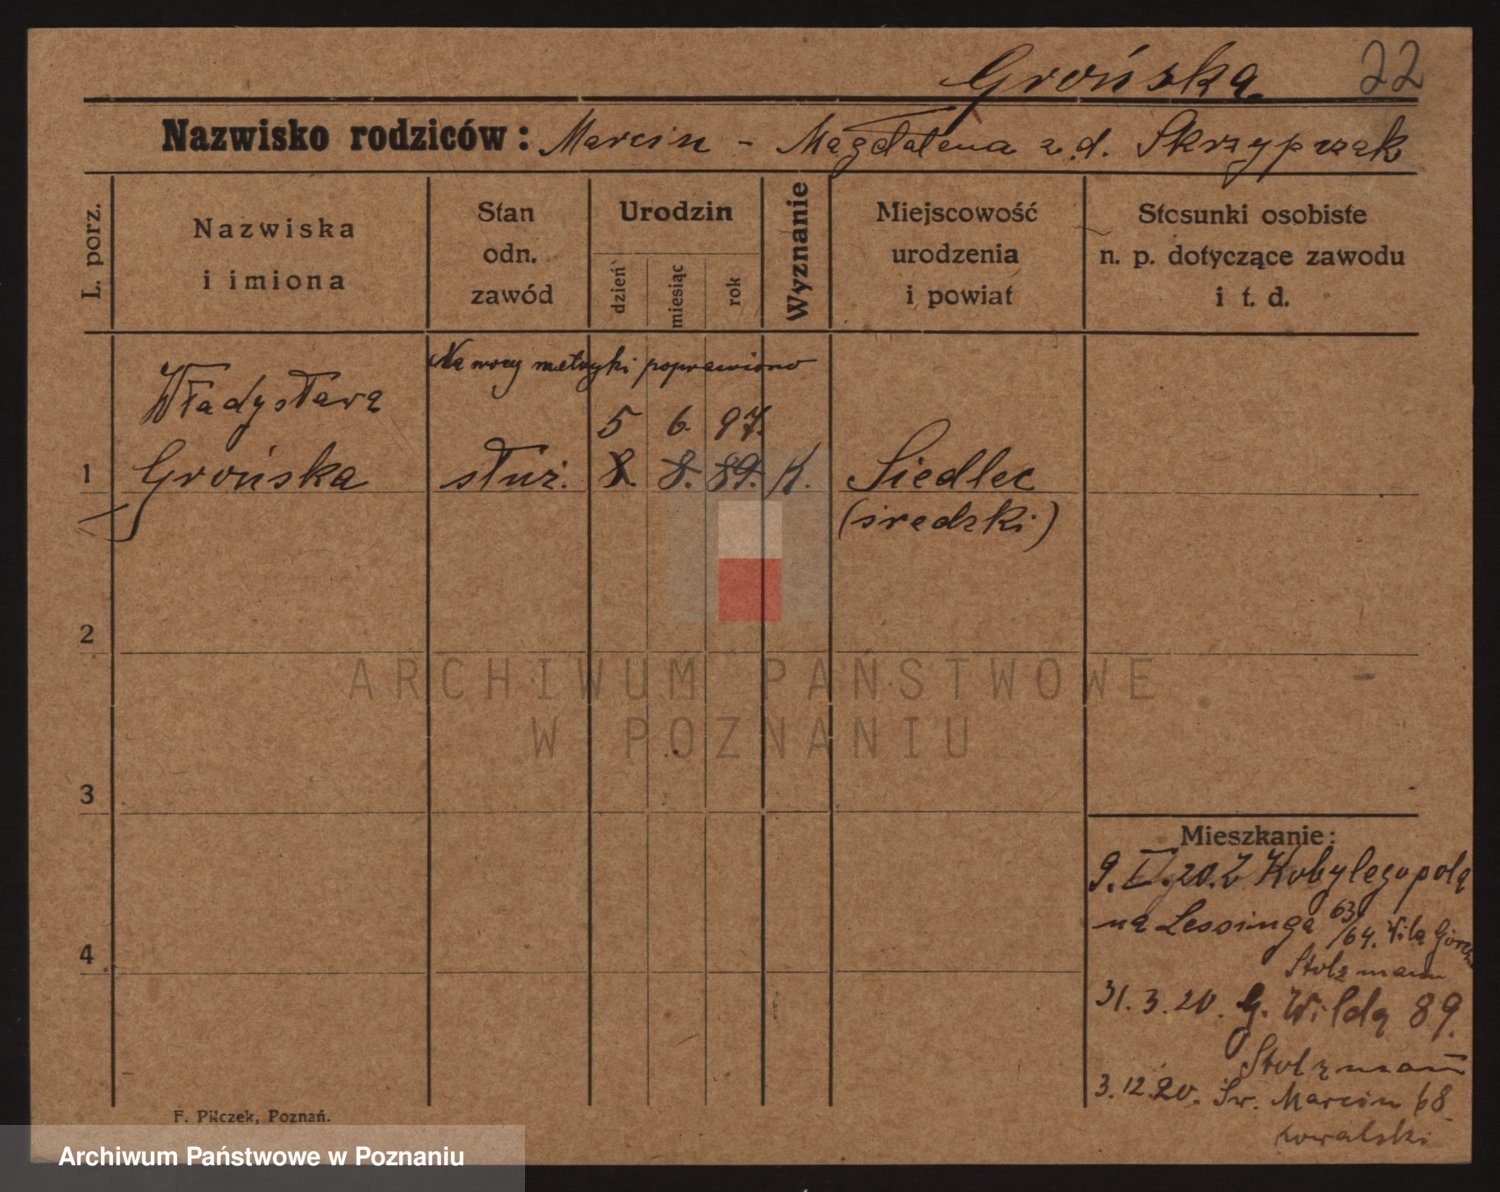 Grońska 22
Nazwisko rodziców: Marcin - Magdalena z d. Skrzypczak
L. porz.
Nazwiska
i imiona
Stan
odn.
zawód
Urodzin
dzień
miesiąc
rok
Wyznanie
Miejscowość
urodzenia
i powiat
Stosunki osobiste
n. p. dotyczące zawodu
i t. d.
Na mocy metryki poprawiono
Władysława
5 6. 97.
1 Grońska służ. 8. 8. 89. K. Siedlec
(średzki)
2
ARCHIWUM PAŃSTWOWE
W POZNANIU
3
Mieszkanie:
20. Z Kobylegopola
na Lessinga 63/64. Vila
4
Stolzmann
31. 3. 20. G. Wilda 89.
Stolzmann
3. 12. 20. Św. Marcin 68
Kowalski
F. Pilczek, Poznań.
Archiwum Państwowe w Poznaniu